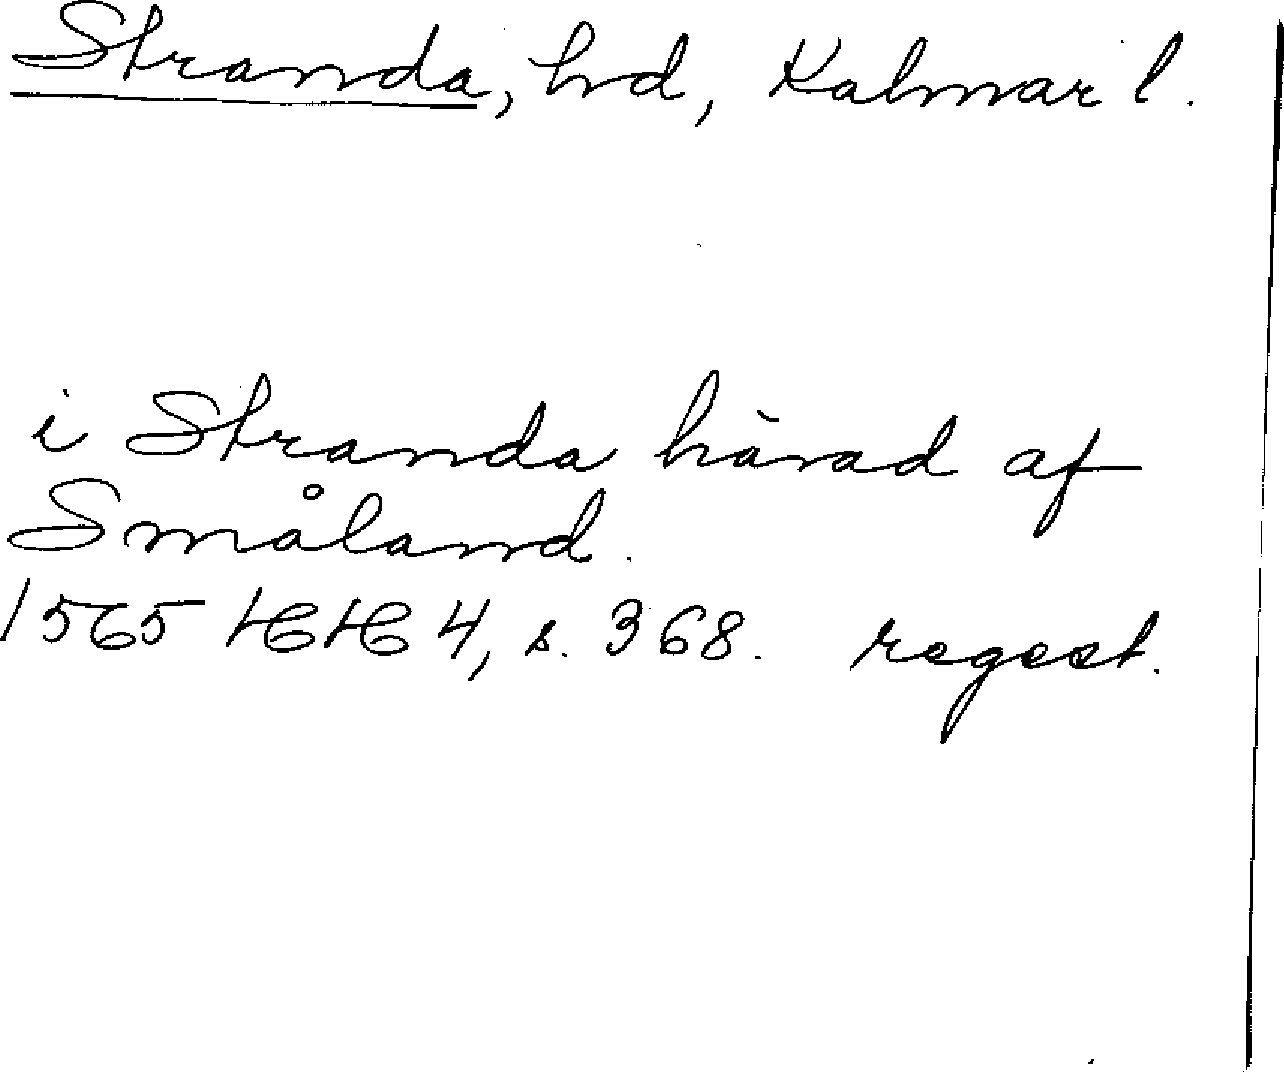 Stranda, hd, Kalmar l.
i Stranda härad af
Småland.
1565 HH 4, s. 368. regest.